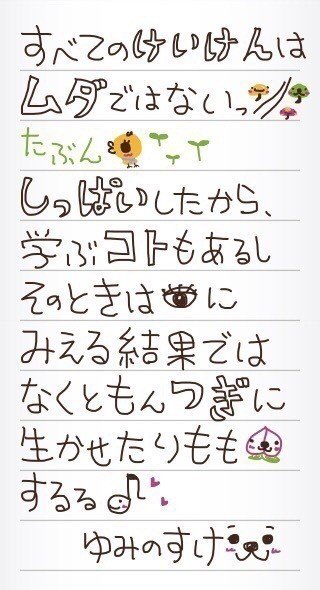 すべてのけいけんは
ムダではないっ
たぶん
しっぱいしたから、
学ぶコトもあるし
そのときは👁に
みえる結果では
なくともんつぎに
生かせたりもも
するる♪
ゆみのすけ